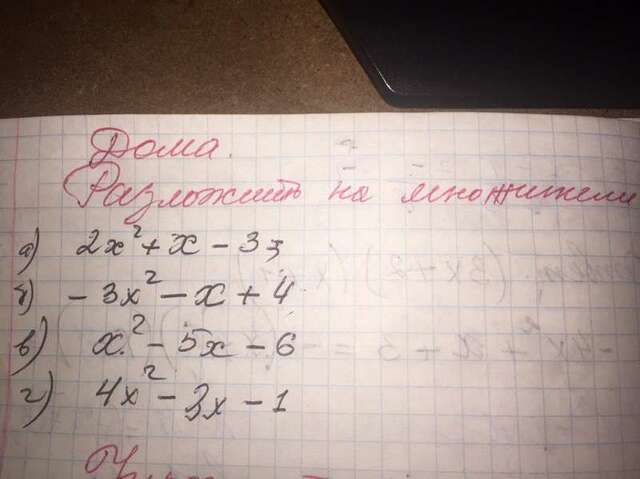 Дома.
Разложить на множители
а) 2x² + x - 3;
б) - 3x² - x + 4
в) x² - 5x - 6
г) 4x² - 3x - 1